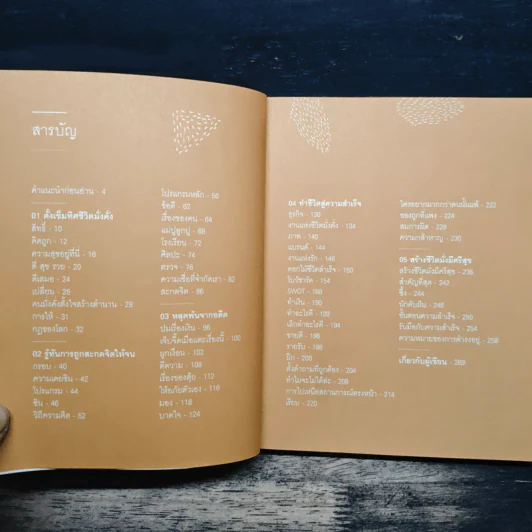 สารบัญ
คำแนะนำก่อนอ่าน - 4
01 ตั้งเข็มทิศชีวิตมั่งคั่ง
สิทธิ์ - 10
คิดถูก - 12
ความสุขอยู่ที่นี่ - 16
ดี สุข รวย - 20
ดีเสมอ - 24
เปลี่ยน - 26
คนมั่งคั่งตั้งใจสร้างตำนาน - 28
การให้ - 31
กฎของโลก - 32
02 รู้ทันการถูกสะกดจิตให้จน
กรอบ - 40
ความเคยชิน - 42
โปรแกรม - 44
ชิน - 46
วิถีความคิด - 52
โปรแกรมหลัก - 56
ข้อดี - 62
เรื่องของคน - 64
แม่ปูลูกปู - 68
โรงเรียน - 72
ศิลปะ - 74
ตรวจ - 76
ความเชื่อที่จำกัดเรา - 80
สะกดจิต - 86
03 หลุดพ้นจากอดีต
ปมเรื่องเงิน - 96
เจ็บจี๊ดเมื่อแตะเรื่องนี้ - 100
ผูกเงื่อน - 102
ตีความ - 108
เรื่องของตุ้ย - 112
ให้อภัยตัวเอง - 116
มอง - 118
บาดใจ - 124
04 ทำชีวิตสู่ความสำเร็จ
ธุรกิจ - 130
งานแห่งชีวิตมั่งคั่ง - 134
ภาพ - 140
แบรนด์ - 144
งานแห่งรัก - 146
ตอกไม้ชีวิตสำเร็จ - 150
ไมร์ชาร์ค - 154
DWOT - 160
ทำเงิน - 190
ทำอะไรดี - 192
เลิกทำอะไรดี - 194
ขายดี - 196
รายรับ - 198
นิก - 200
ตั้งคำถามที่ถูกต้อง - 204
ทำไมจะไม่ได้ล่ะ - 208
การไปเหนือสถานการณ์ตรงหน้า - 214
เงียบ - 220
ใครอยากมากกว่าคนนั้นแพ้ - 222
ของถูกที่แพง - 224
สมการผิด - 228
ความกล้าหาญ - 230
05 สร้างชีวิตมั่งมีศรีสุข
สร้างชีวิตมั่งมีศรีสุข - 236
สำคัญที่สุด - 242
ซึ้ง - 244
นักดับฝัน - 248
ขั้นตอนความสำเร็จ - 250
รับมือกับความสำเร็จ - 254
ความหมายของการดำรงอยู่ - 258
เกี่ยวกับผู้เขียน - 269